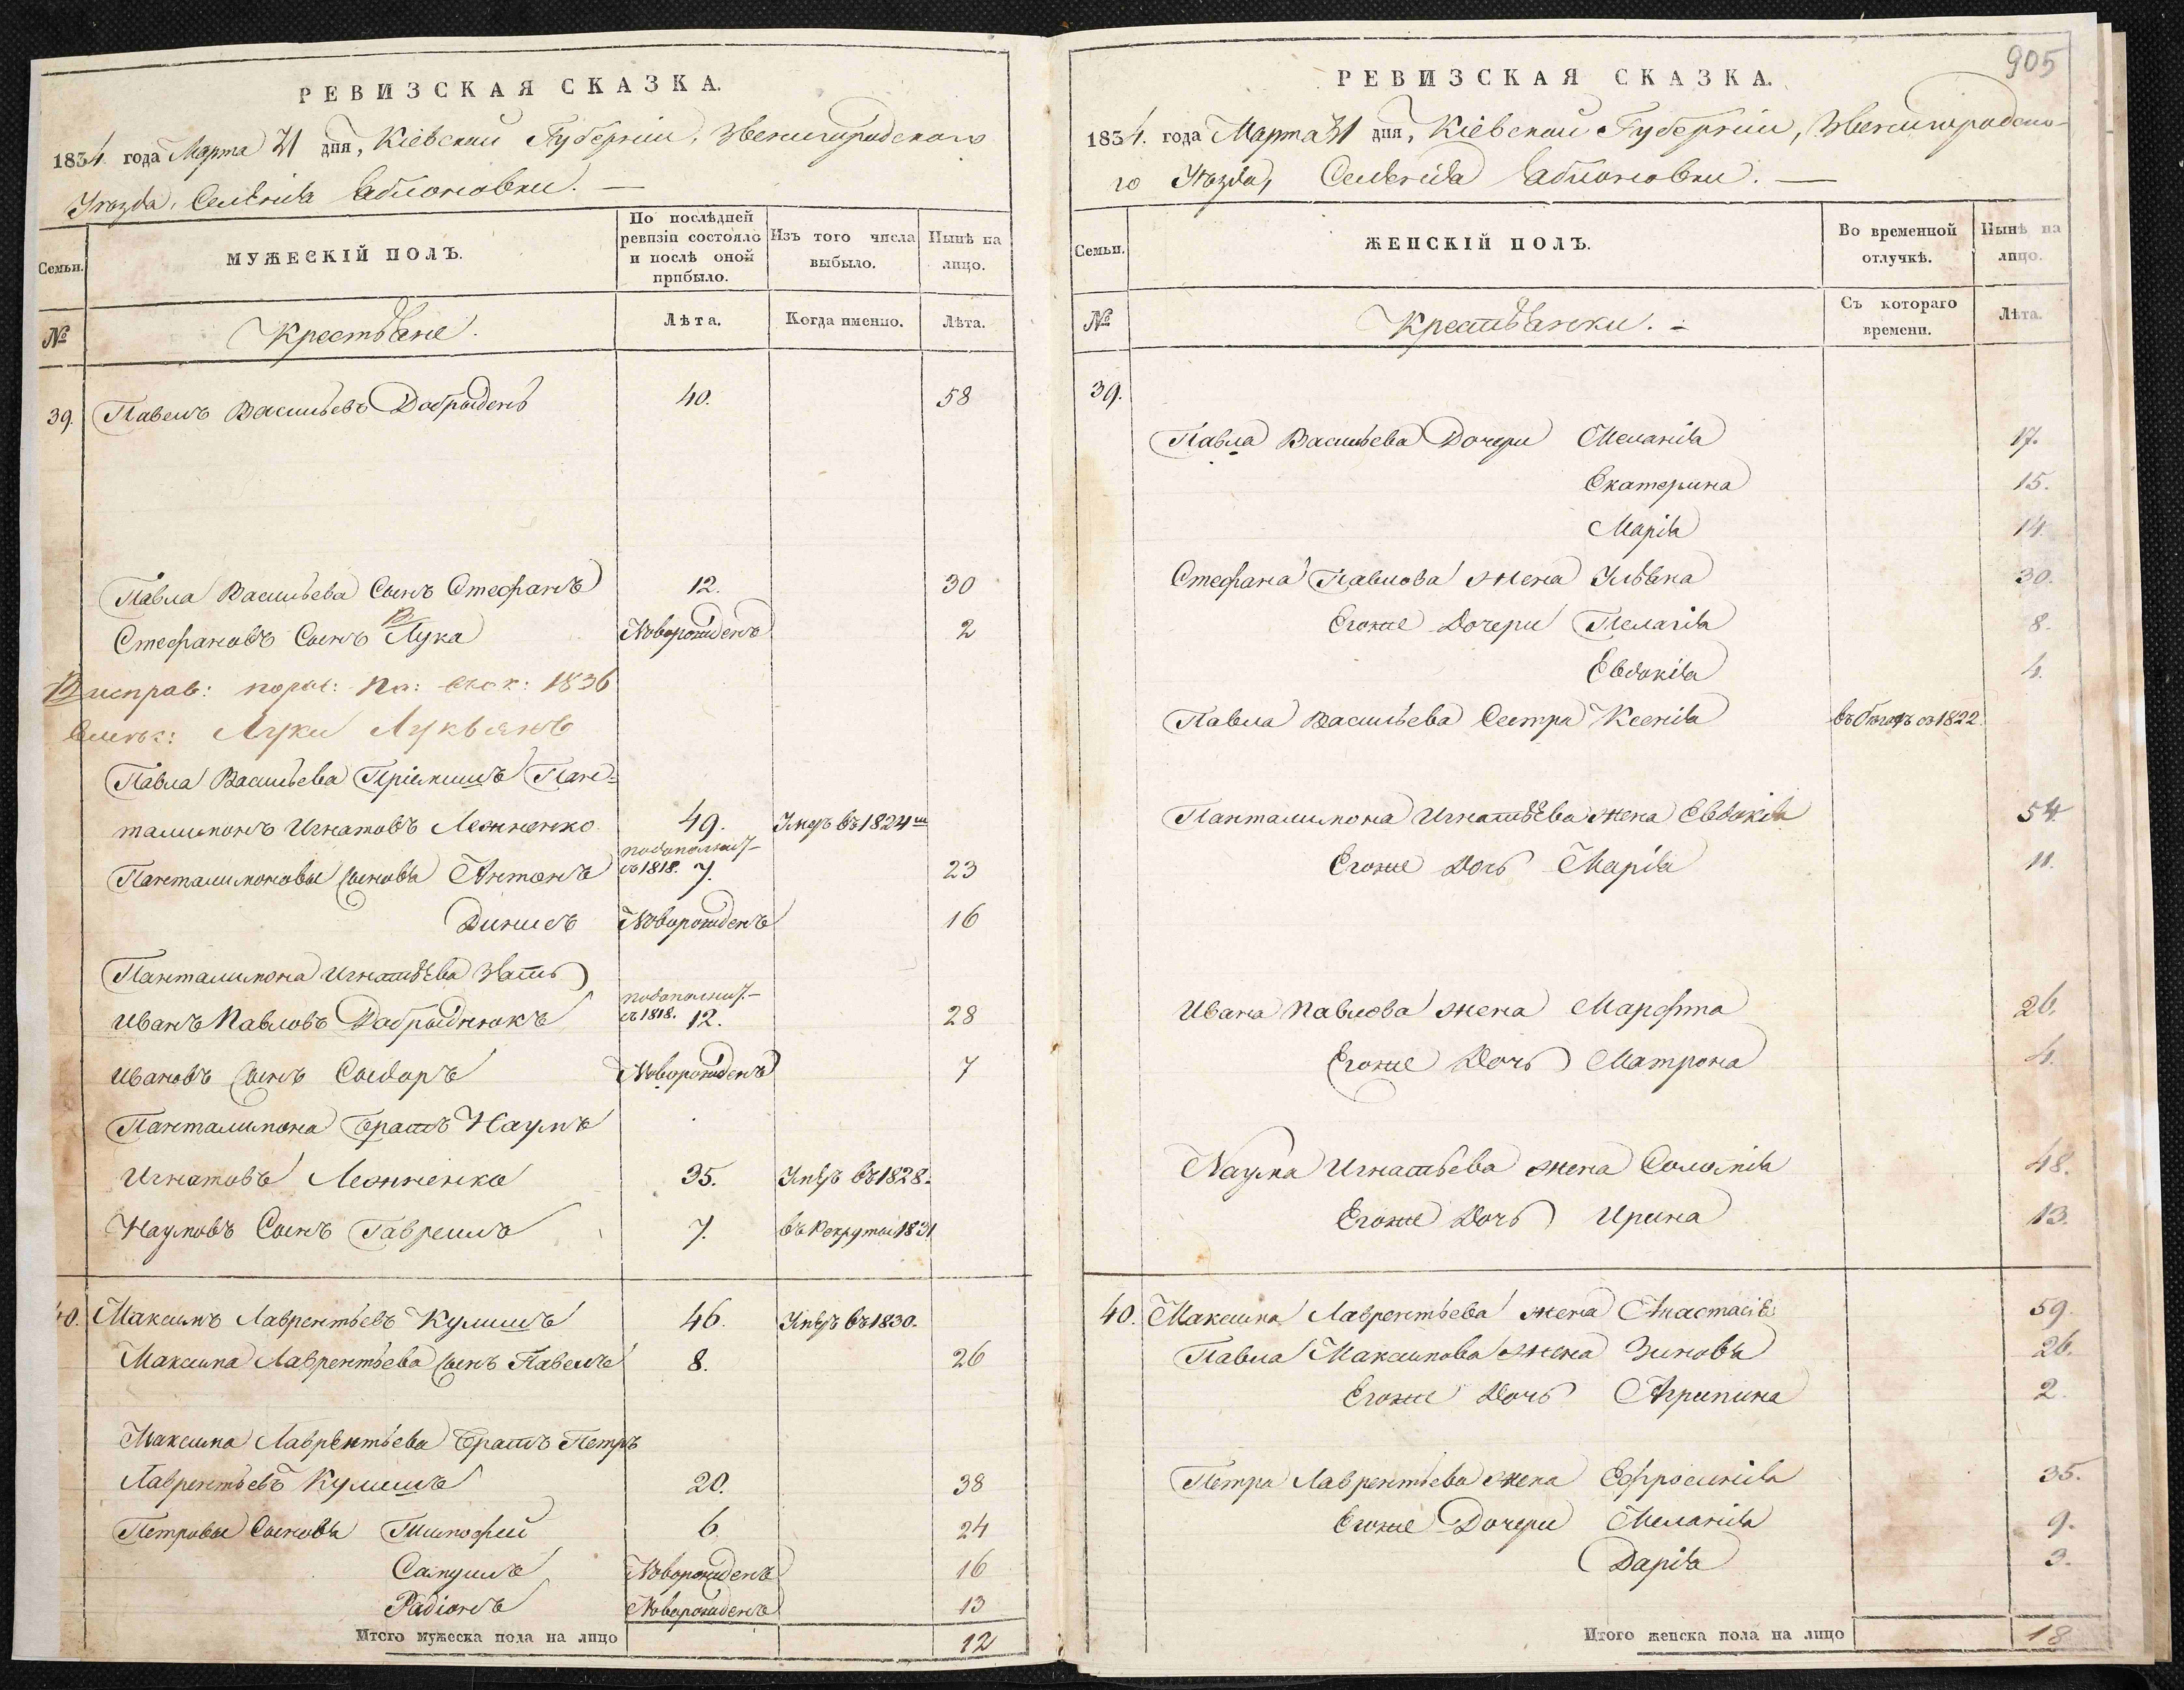 РЕВИЗСКАЯ СКАЗКА.
1834. года Марта 31 дня, Кіевской Губерніи, Звенигородскаго
Уѣзда, Селенія Яблоновки. —
Семьи.
МУЖЕСКІЙ ПОЛЪ.
По послѣдней ревизіи состояло и послѣ оной прибыло.
Изъ того числа выбыло.
Нынѣ на лицо.
№
Крестьяне.
Лѣта.
Когда именно.
Лѣта.
39. Павелъ Васильевъ Добрыдень 40. 58
Павла Васильева Сынъ Стефанъ 12. 30
Стефановъ Сынъ Лука Новорожденъ 2
исправ: 1836
Луки Лукьянъ
Павла Васильева Пріймишъ Пан-
талимонъ Игнатовъ Леониенко 49. Умеръ въ 1824
Панталимоновы Сыновья Антонъ съ 1818. 7. 23
Динисъ Новорожденъ 16
Панталимона Игнатьева Зять
Иванъ Павловъ Добрыднюкъ съ 1818. 12. 28
Ивановъ Сынъ Сыдоръ Новорожденъ 7
Панталимона Братъ Наумъ
Игнатовъ Леониенко 35. Умеръ въ 1828.
Наумовъ Сынъ Гаврешлъ 7. въ Рекруты 1831
40. Максимъ Лаврентьевъ Кулишъ 46. Умеръ въ 1830.
Максима Лаврентьева Сынъ Павелъ 8. 26
Максима Лаврентьева Братъ Петръ
Лаврентьевъ Кулишъ 20. 38
Петровы Сыновья Тимофей 6. 24
Самуилъ Новорожденъ 16
Радіонъ Новорожденъ 13
Итого мужеска пола на лицо 12
905
РЕВИЗСКАЯ СКАЗКА.
1834. года Марта 31 дня, Кіевской Губерніи, Звенигородска-
го Уѣзда, Селенія Яблоновки. —
Семьи.
ЖЕНСКІЙ ПОЛЪ.
Во временной отлучкѣ.
Нынѣ на лицо.
№
Крестьянки.
Съ котораго времени.
Лѣта.
39.
Павла Васильева Дочери Меланія 17.
Екатерина 15.
Марія 14.
Стефана Павлова жена Ульяна 30.
Егоже Дочери Пелагія 8.
Евдокія 4.
Павла Васильева Сестра Ксенія въ бѣгахъ съ 1822.
Панталимона Игнатьева жена Евдокія 54
Егоже Дочь Марія 11.
Ивана Павлова жена Марфта 26.
Егоже Дочь Матрона 4.
Наума Игнатьева жена Соломія 48.
Егоже Дочь Ирина 13.
40. Максима Лаврентьева жена Анастасія 59.
Павла Максимова жена Зиновья 26.
Егоже Дочь Агрипина 2.
Петра Лаврентьева жена Ефросинія 35.
Егоже Дочери Меланія 9.
Дарія 3.
Итого женска пола на лицо 18